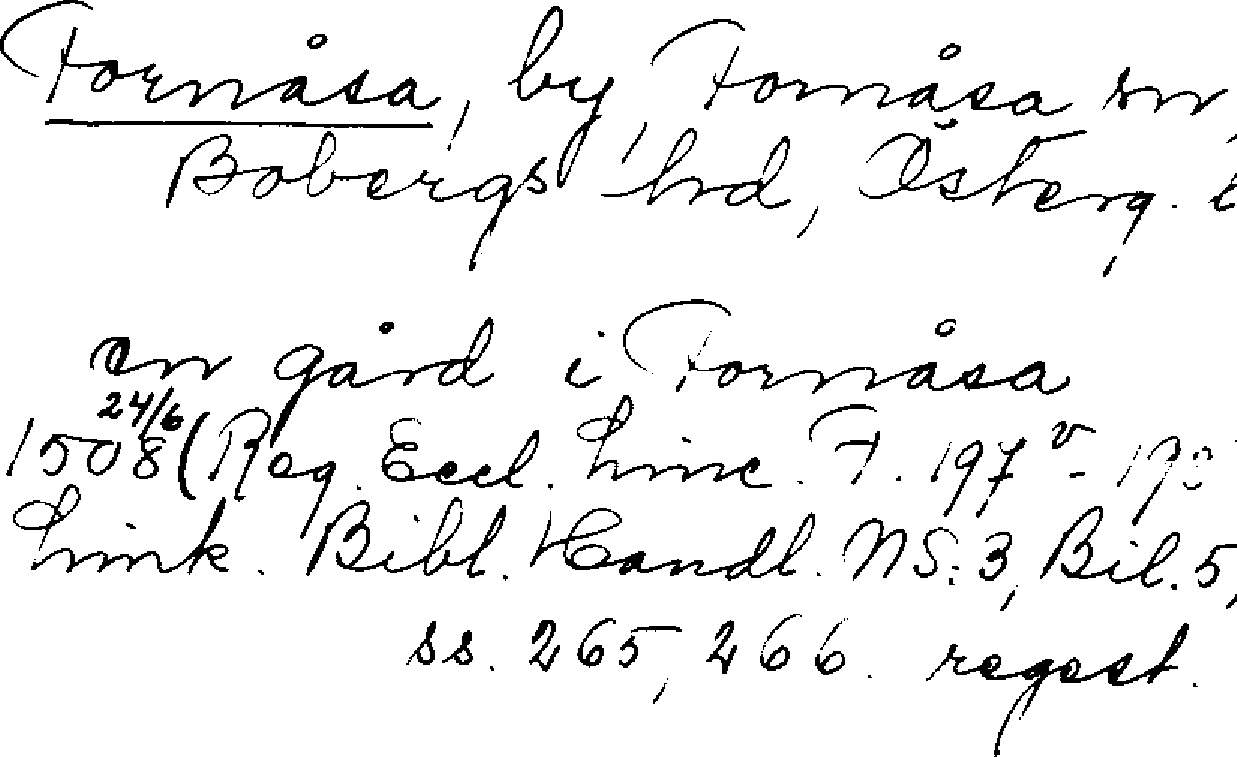 Fornåsa, by, Fornåsa sn,
Bobergs hrd, Österg. l
en gård i Fornåsa
24/6
1508 (Reg. Eccl. Linc. F. 197v-
Link. Bibl. Handl. NS:3, Bil. 5,
ss. 265, 266. regest.